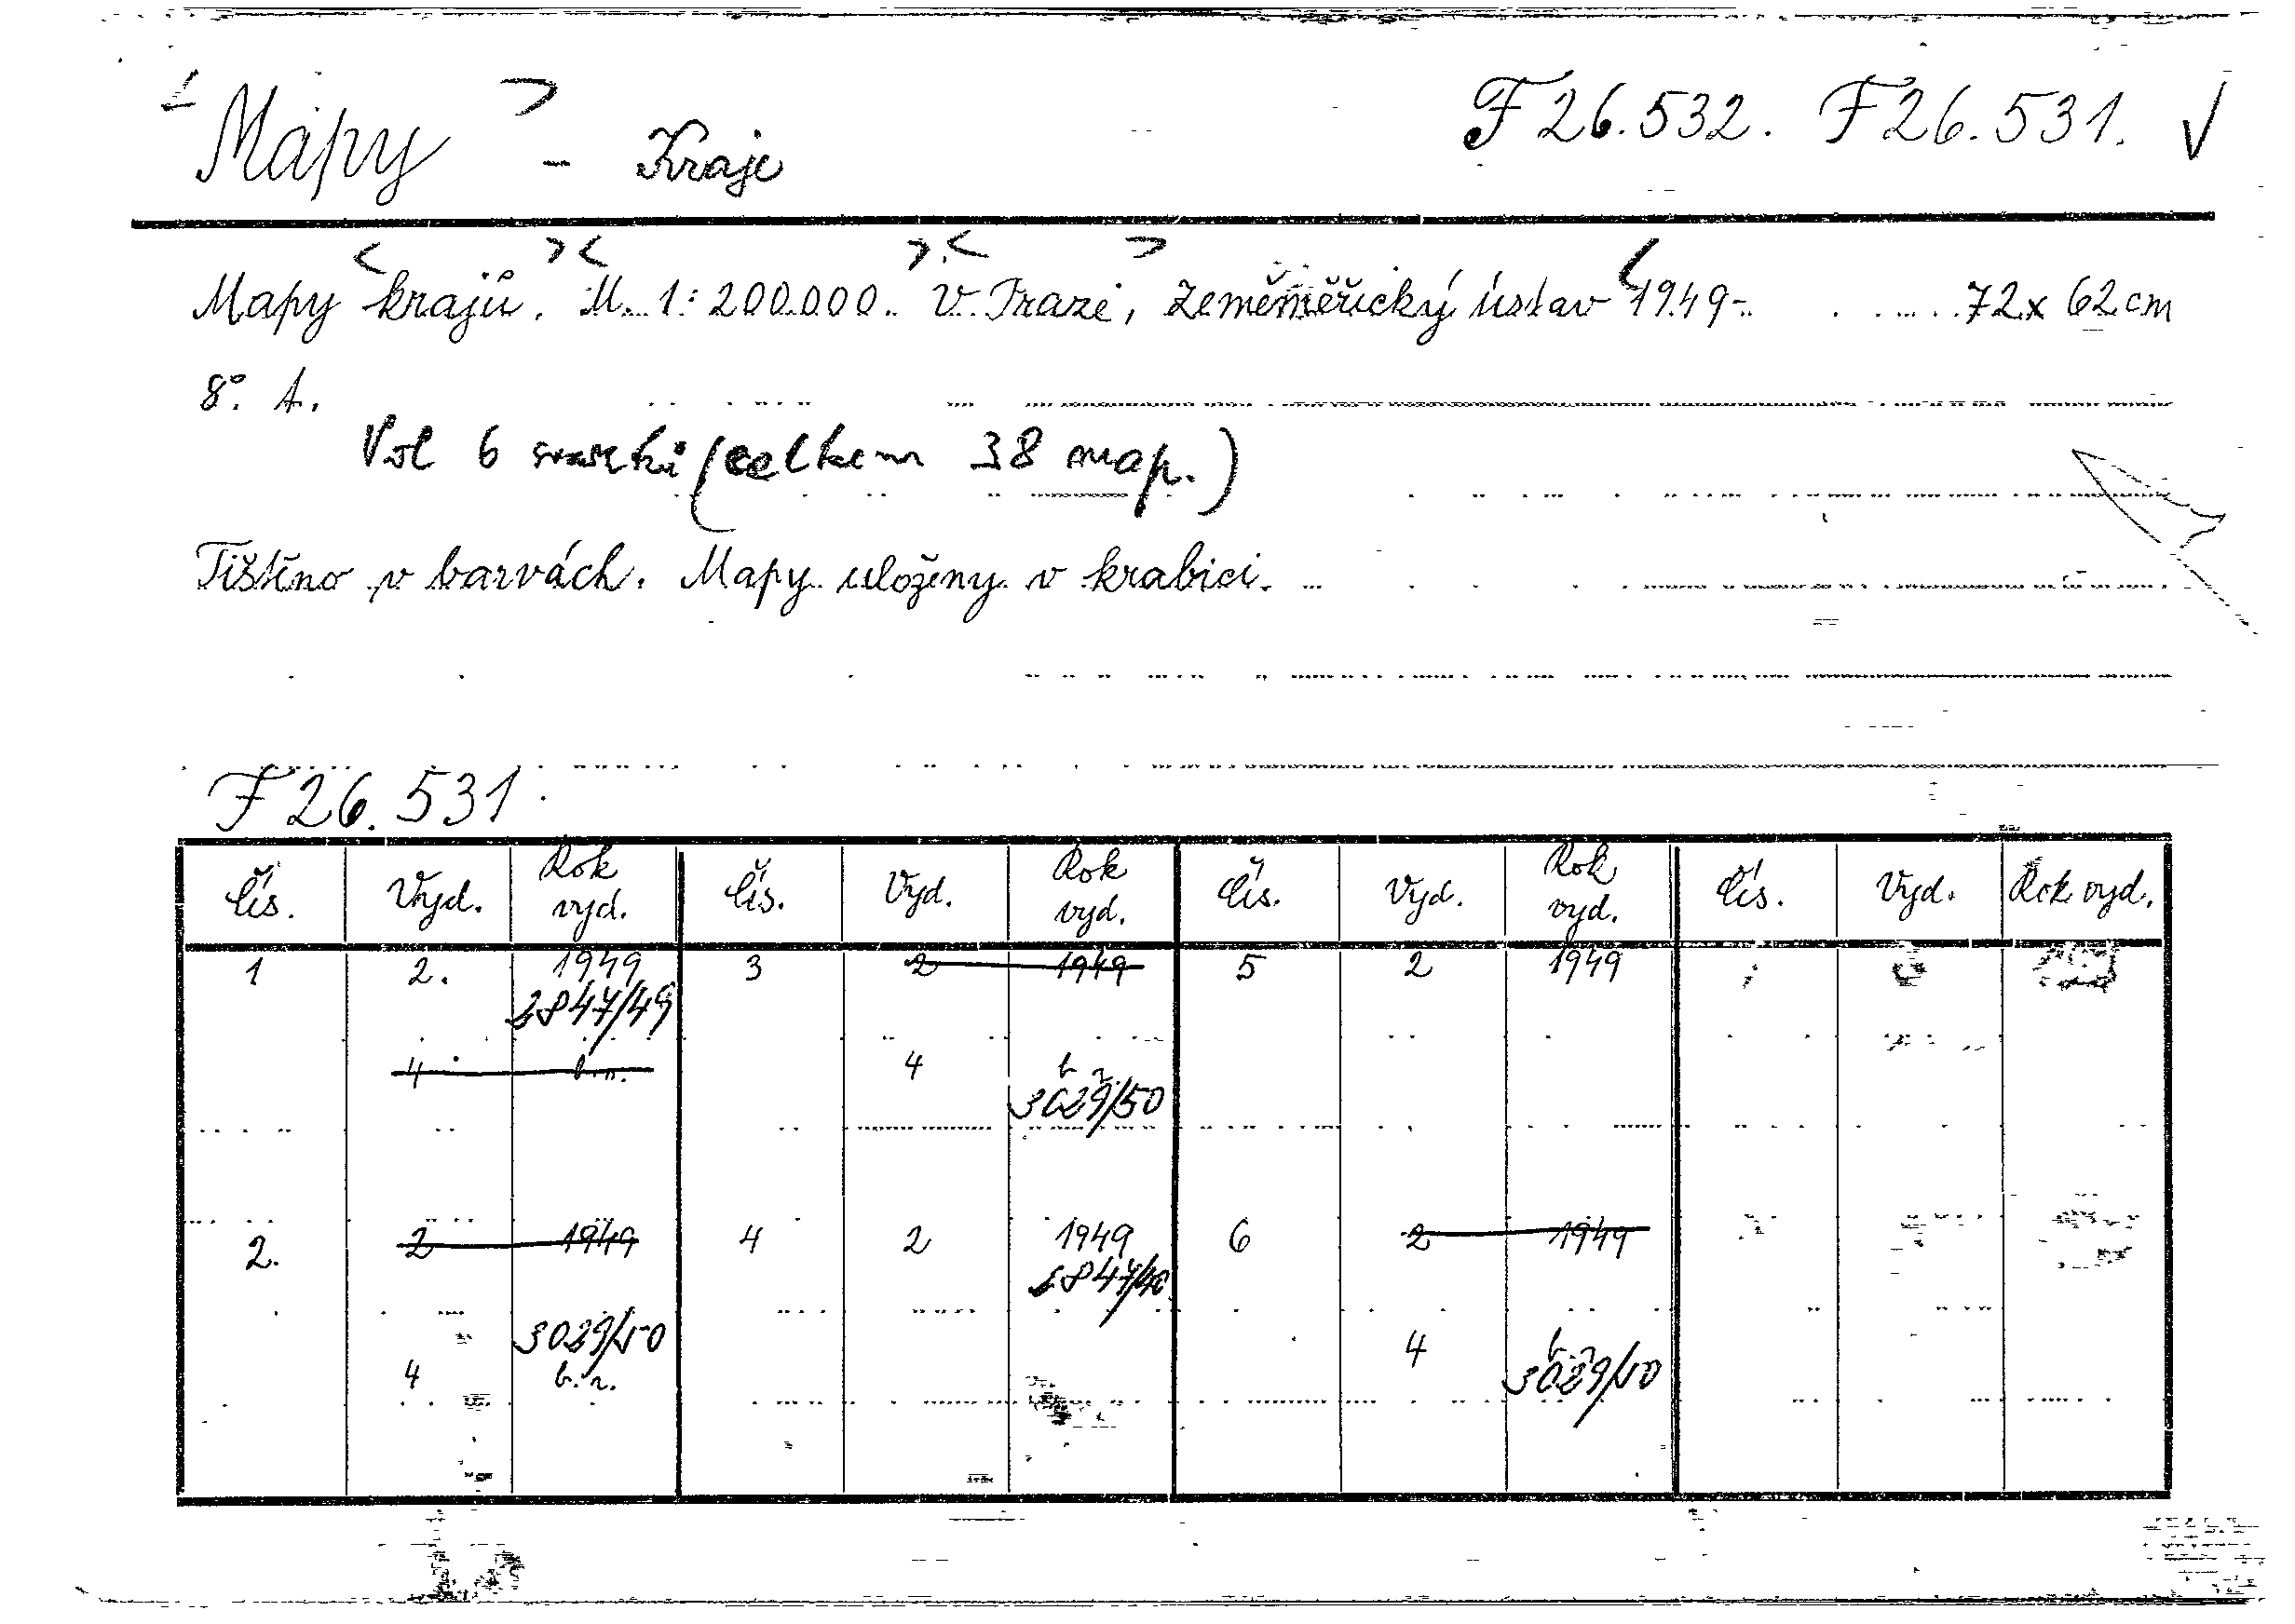 Mapy - Kraje F 26.532. F 26.531. √
Mapy krajů. M. 1:200.000. V Praze, Zeměměřický ústav 1949-. 72 x 62 cm
8°. A.
Vol 6 svazků (celkem 38 map.)
Tištěno v barvách. Mapy uloženy v krabici.
F 26.531
Čís. Vyd. Rok vyd. Čís. Vyd. Rok vyd. Čís. Vyd. Rok vyd. Čís. Vyd. Rok vyd.
1 2. 1949 3 2 1949 5 2 1949
2847/49
4 b.r. 4 b.r.
3029/50
2. 2 1949 4 2 1949 6 2 1949
2847/49
3029/50 4 b.r.
4 b.r. 3029/50